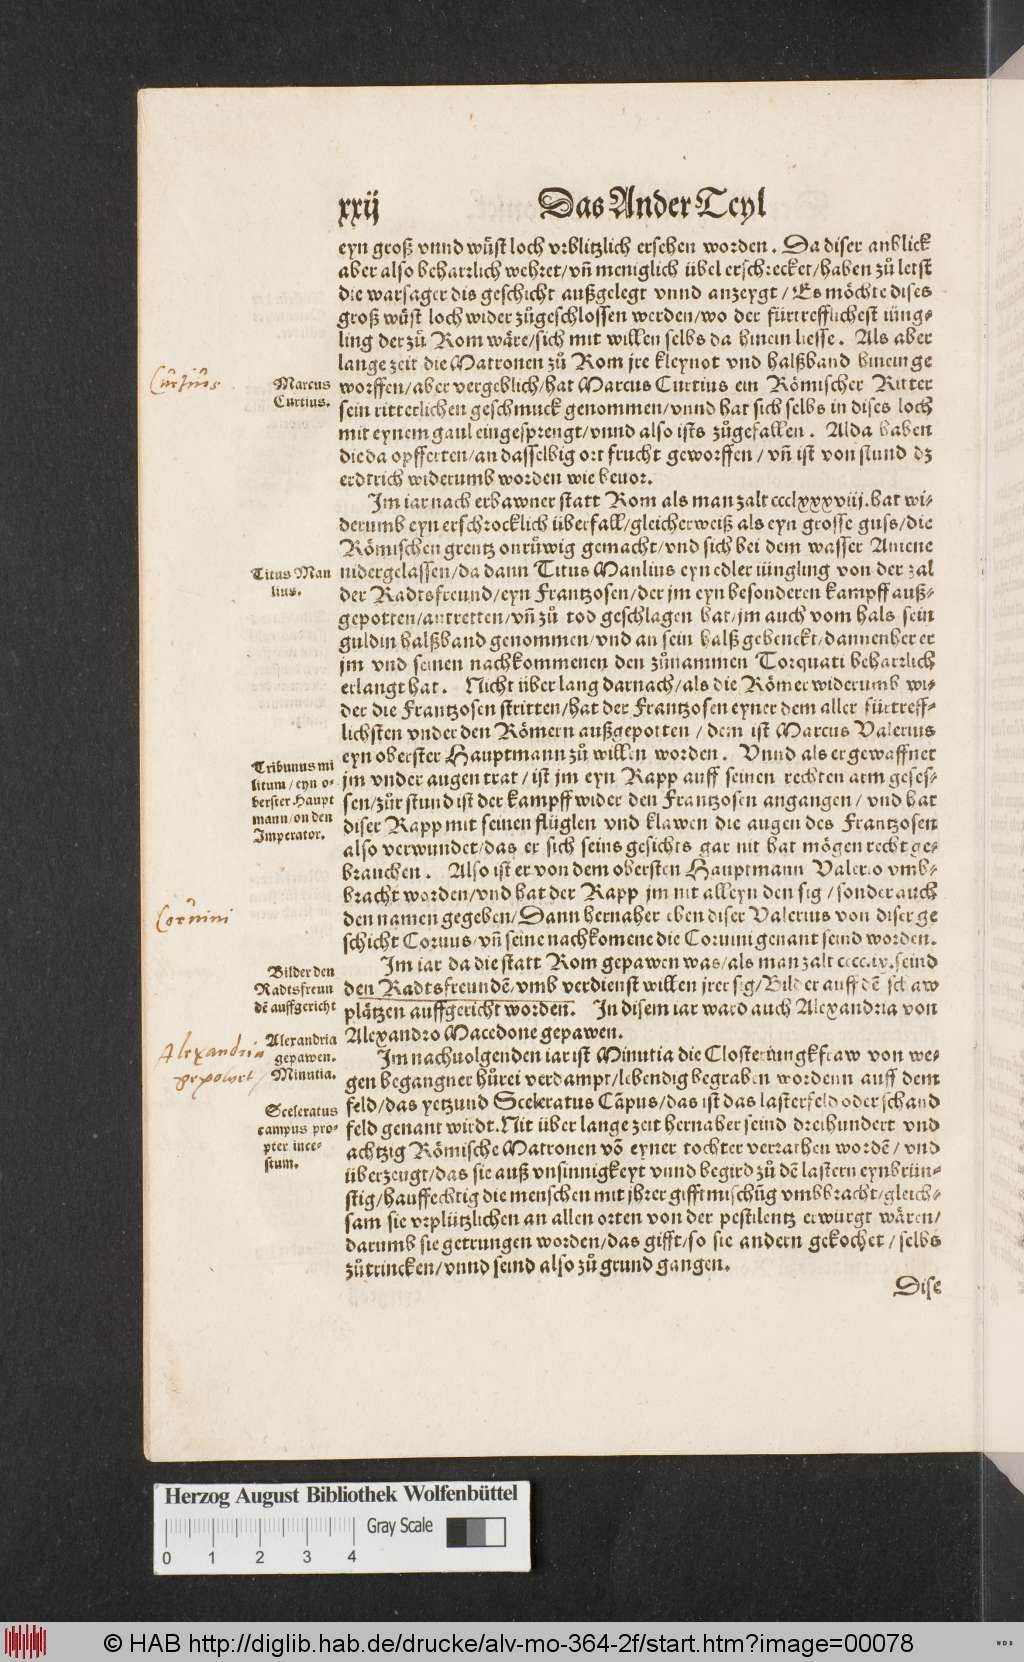 xxij
Das Ander Teyl
eyn groß vnnd wüst loch vrblitzlich ersehen worden. Da diser anblick
aber also beharrlich wehret/vñ meniglich übel erschrecket/haben zů letst
die warsager dis geschicht außgelegt vnnd anzeygt/Es möchte dises
groß wüst loch wider zůgeschlossen werden/wo der fürtrefflichest iüng-
ling der zů Rom wäre/sich mit willen selbs da hinein liesse. Als aber
lange zeit die Matronen zů Rom jre kleynot vnd halßband hinein ge
worffen/aber vergeblich/hat Marcus Curtius ein Römischer Ritter
sein ritterlichen geschmuck genommen/vnnd hat sich selbs in dises loch
mit eynem gaul eingesprengt/vnnd also ists zůgefallen. Alda haben
die da opfferten/an dasselbig ort frucht geworffen/vñ ist von stund dz
erdtrich widerumb worden wie beuor.
Curtius
Marcus
Curtius.
Jm iar nach erbawner statt Rom als man zalt ccclxxxviij.hat wi-
derumb eyn erschrocklich überfall/gleicherweiß als eyn grosse guss/die
Römischen grentz onrůwig gemacht/vnd sich bei dem wasser Aniene
nidergelassen/da dann Titus Manlius eyn edler iüngling von der zal
der Radtsfreund/eyn Frantzosen/der jm eyn besonderen kampff auß-
gepotten/antretten/vñ zů tod geschlagen hat/jm auch vom hals sein
guldin halßband genommen/vnd an sein halß gehenckt/dannenher er
jm vnd seinen nachkommenen den zůnammen Torquati beharrlich
erlangt hat. Nicht über lang darnach/als die Römer widerumb wi-
der die Frantzosen stritten/hat der Frantzosen eyner dem aller fürtreff-
lichsten vnder den Römern außgepotten/dem ist Marcus Valerius
eyn oberster Hauptmann zů willen worden. Vnnd als er gewaffnet
jm vnder augen trat/ist jm eyn Rapp auff seinen rechten arm geses-
sen/zůr stund ist der kampff wider den Frantzosen angangen/vnd hat
diser Rapp mit seinen flüglen vnd klawen die augen des Frantzosen
also verwundet/das er sich seins gesichts gar nit hat mögen recht ge-
brauchen. Also ist er von dem obersten Hauptmann Valerio vmb-
bracht worden/vnd hat der Rapp jm nit alleyn den sig/sonder auch
den namen gegeben/Dann hernaher eben diser Valerius von diser ge
schicht Coruus/vñ seine nachkomene die Coruini genant seind worden.
Titus Man
lius.
Tribunus mi
litum/eyn o-
berster Haupt
mann/on den
Jmperator.
Coruini
Jm iar da die statt Rom gepawen was/als man zalt cccc.ix.seind
den Radtsfreundẽ/vmb verdienst willen jrer sig/Bilder auff dẽ schaw
plätzen auffgericht worden. Jn disem iar ward auch Alexandria von
Alexandro Macedone gepawen.
Bilder den
Radtsfreun
dẽ auffgericht
Alexandria
gepawen.
Alexandria
Jm nachuolgenden iar ist Minutia die Closteriungkfraw von we-
gen begangner hůrei verdampt/lebendig begraben wordenn auff dem
feld/das yetzund Sceleratus Cãpus/das ist das lasterfeld oder schand
feld genant wirdt. Nit über lange zeit hernaher seind dreihundert vnd
achtzig Römische Matronen võ eyner tochter verrathen wordẽ/vnd
überzeugt/das sie auß vnsinnigkeyt vnnd begird zů dẽ lastern eynbrün-
stig/hauffechtig die menschen mit jhrer gifftmischũg vmbbracht/gleich-
sam sie vrplützlichen an allen orten von der pestilentz erwürgt wären/
darumb sie getrungen worden/das gifft/so sie andern gekochet/selbs
zůtrincken/vnnd seind also zů grund gangen.
Minutia.
Sceleratus
campus pro-
pter ince-
stum.
Dise
Herzog August Bibliothek Wolfenbüttel
Gray Scale
0 1 2 3 4
© HAB http://diglib.hab.de/drucke/alv-mo-364-2f/start.htm?image=00078